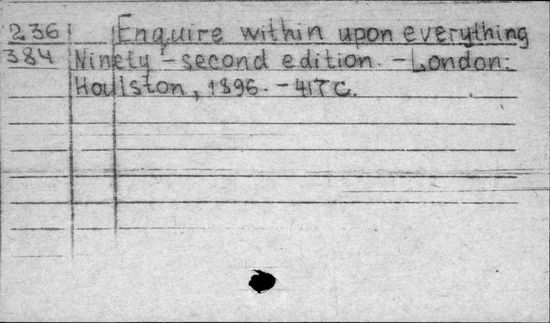 236 Enquire within upon everything
384 Ninety - second edition. - London:
Houlston, 1896. - 417 c.